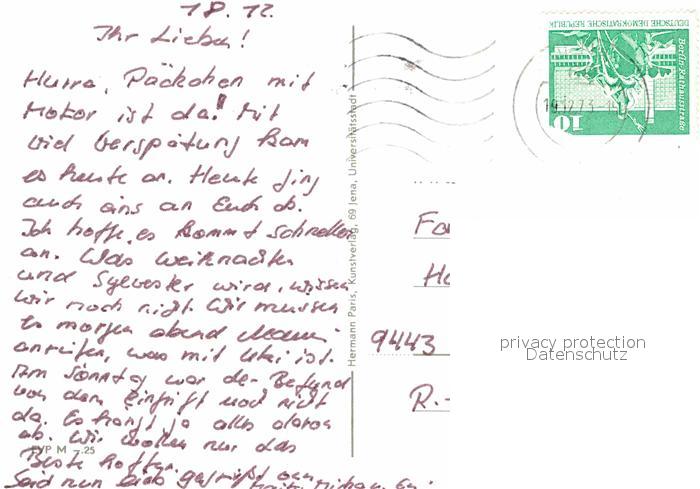 18. 12.
Ihr Lieben!
Hurra, Päckchen mit
Motor ist da! Mit
viel Verspätung kam
es heute an. Heute ging
auch eins an Euch ab.
Ich hoffe, es kommt schneller
an. Was Weihnachten
und Sylvester wird, wissen
wir noch nicht. Wir müssen
morgen abend
anrufen, was mit ist.
Am Sonntag war der Befund
von dem Eingriff noch nicht
da. Es hängt ja alles davon
ab. Wir wollen nur das
Beste hoffen.
Seid nun lieb gegrüßt von
EVP M -.25
Hermann Paris, Kunstverlag, 69 Jena, Universitätsstadt
DEUTSCHE DEMOKRATISCHE REPUBLIK
Berlin, Rathausstraße
10
19.12.73
Fa
9443
R.-
privacy protection
Datenschutz